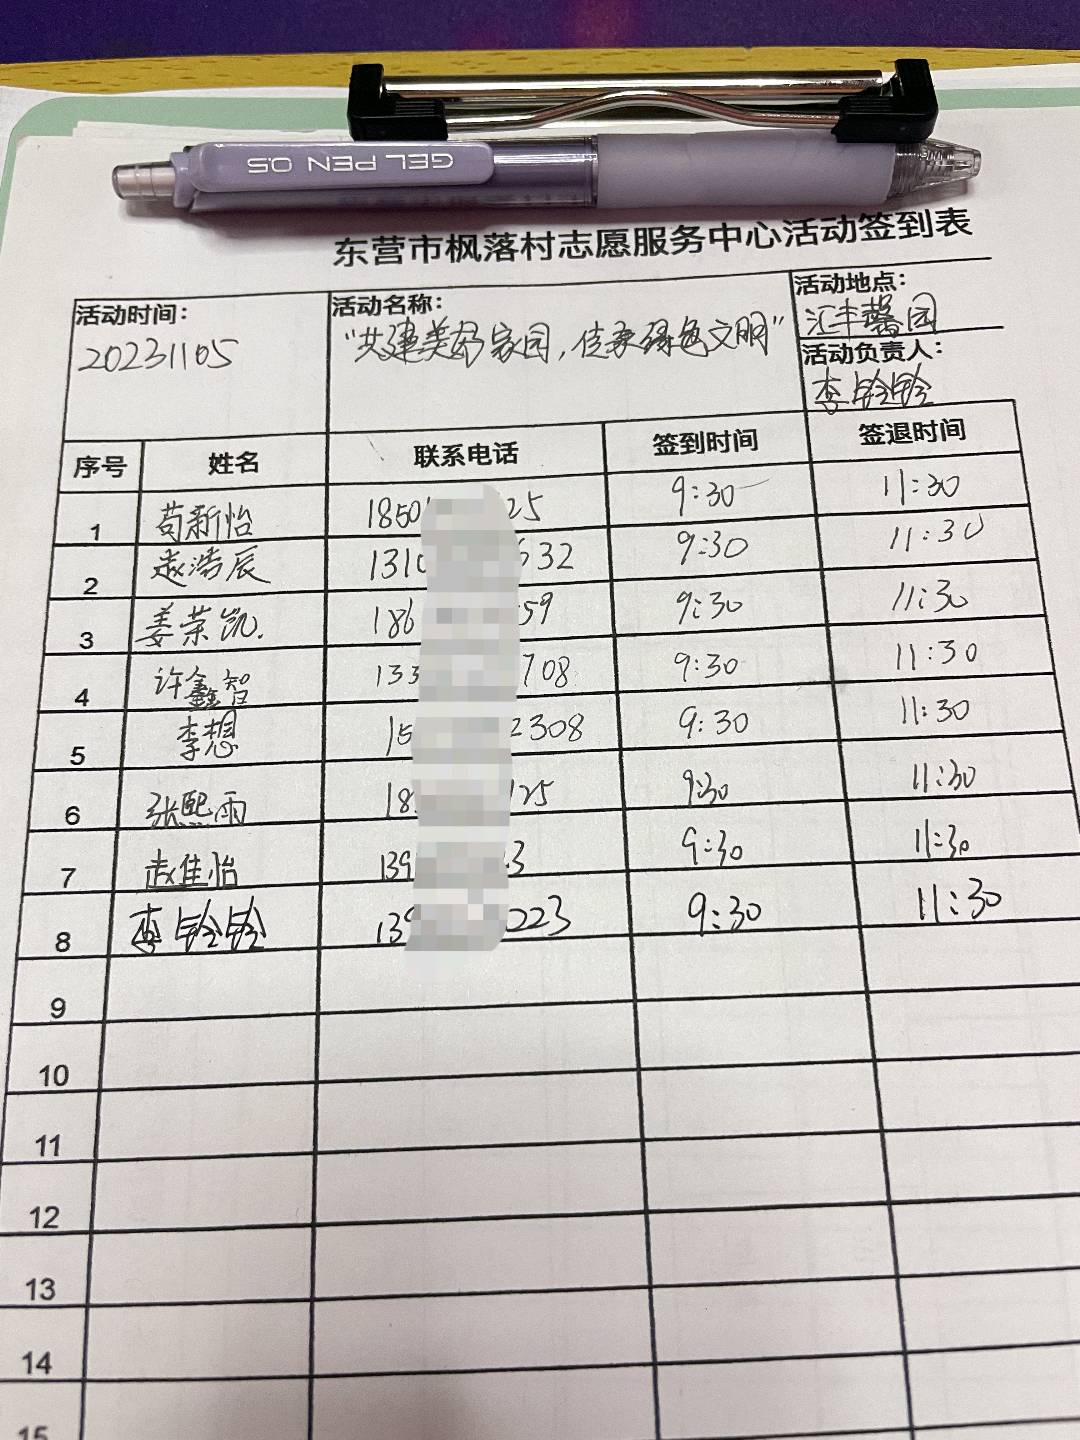 GEL PEN 0.5
东营市枫落村志愿服务中心活动签到表
活动时间：
20231105
活动名称：
“共建美好家园，传承绿色文明”
活动地点：
汇丰馨园
活动负责人：
李铃铃
序号 姓名 联系电话 签到时间 签退时间
1 苟新怡 1850 25 9:30 11:30
2 赵浩辰 1310 632 9:30 11:30
3 姜荣凯. 186 59 9:30 11:30
4 许鑫智 133 708 9:30 11:30
5 李想 15 2308 9:30 11:30
6 张熙雨 18 125 9:30 11:30
7 赵佳怡 139 3 9:30 11:30
8 李铃铃 139 023 9:30 11:30
9
10
11
12
13
14
15